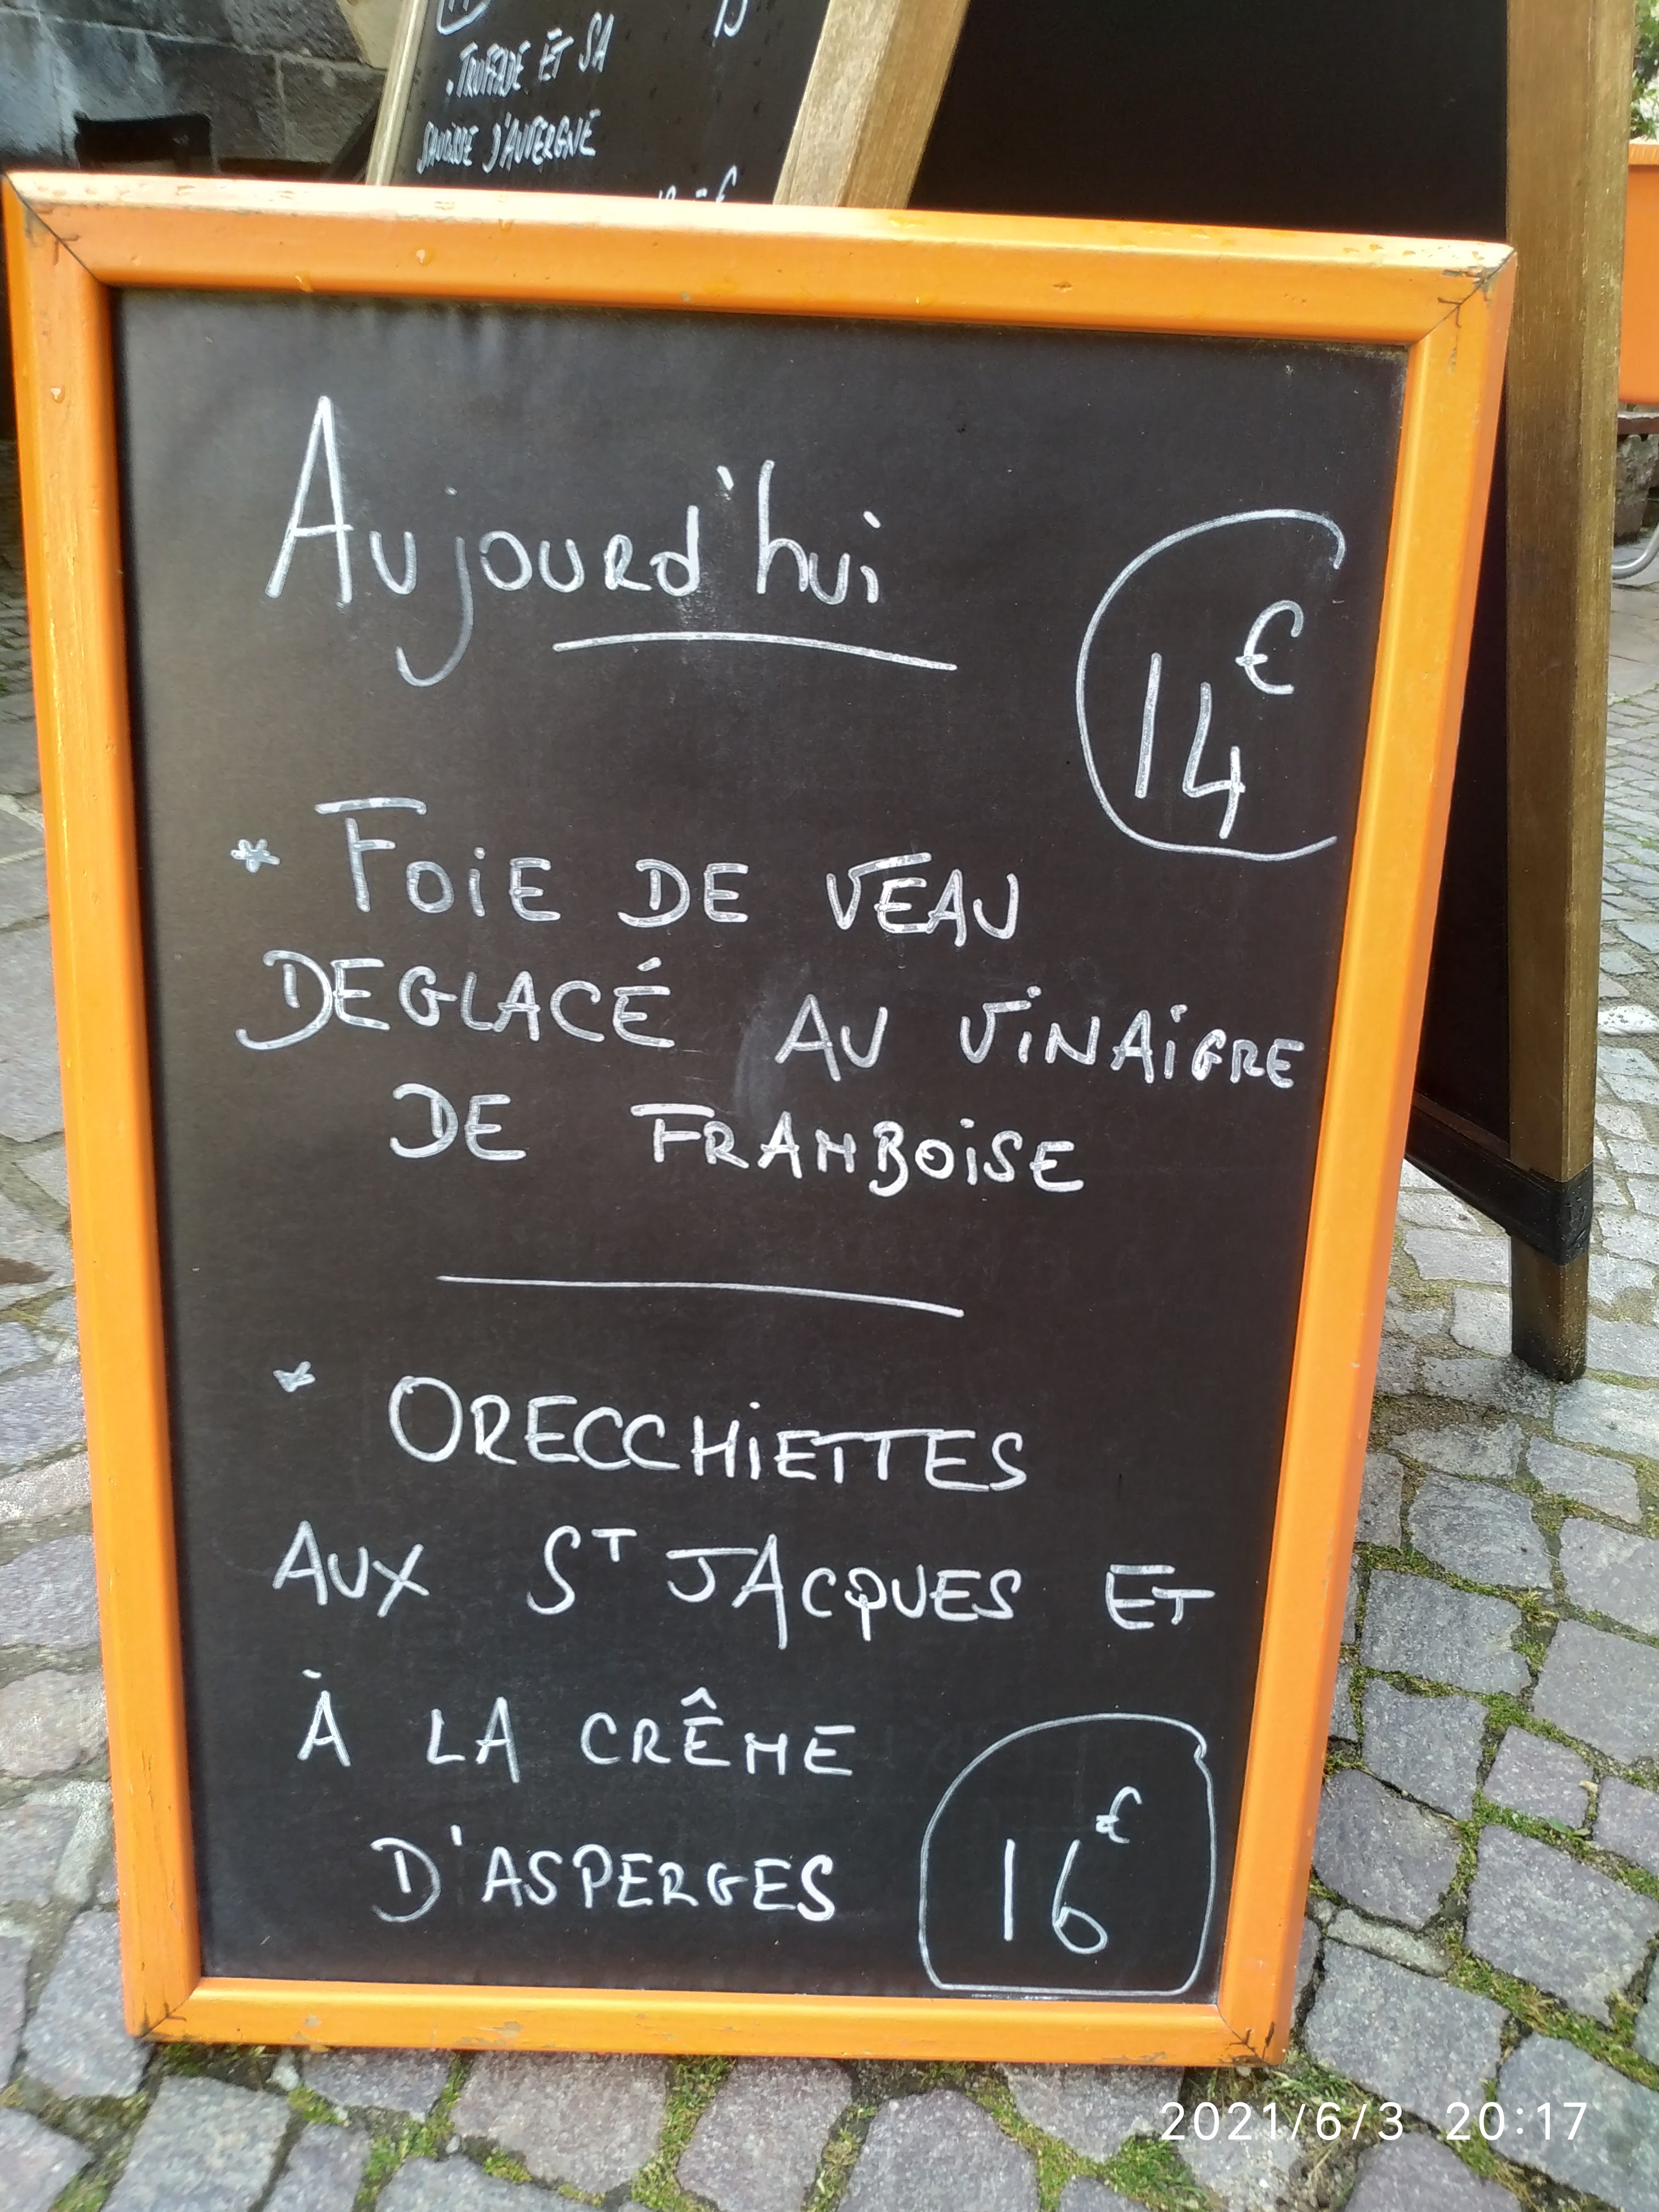 . TRUFFADE ET SA
SAUCISSE D'AUVERGNE
Aujourd'hui
14€
* FOIE DE VEAU
DEGLACÉ AU VINAIGRE
DE FRAMBOISE
* ORECCHIETTES
AUX ST JACQUES ET
À LA CRÊME
D'ASPERGES
16€
2021/6/3 20:17